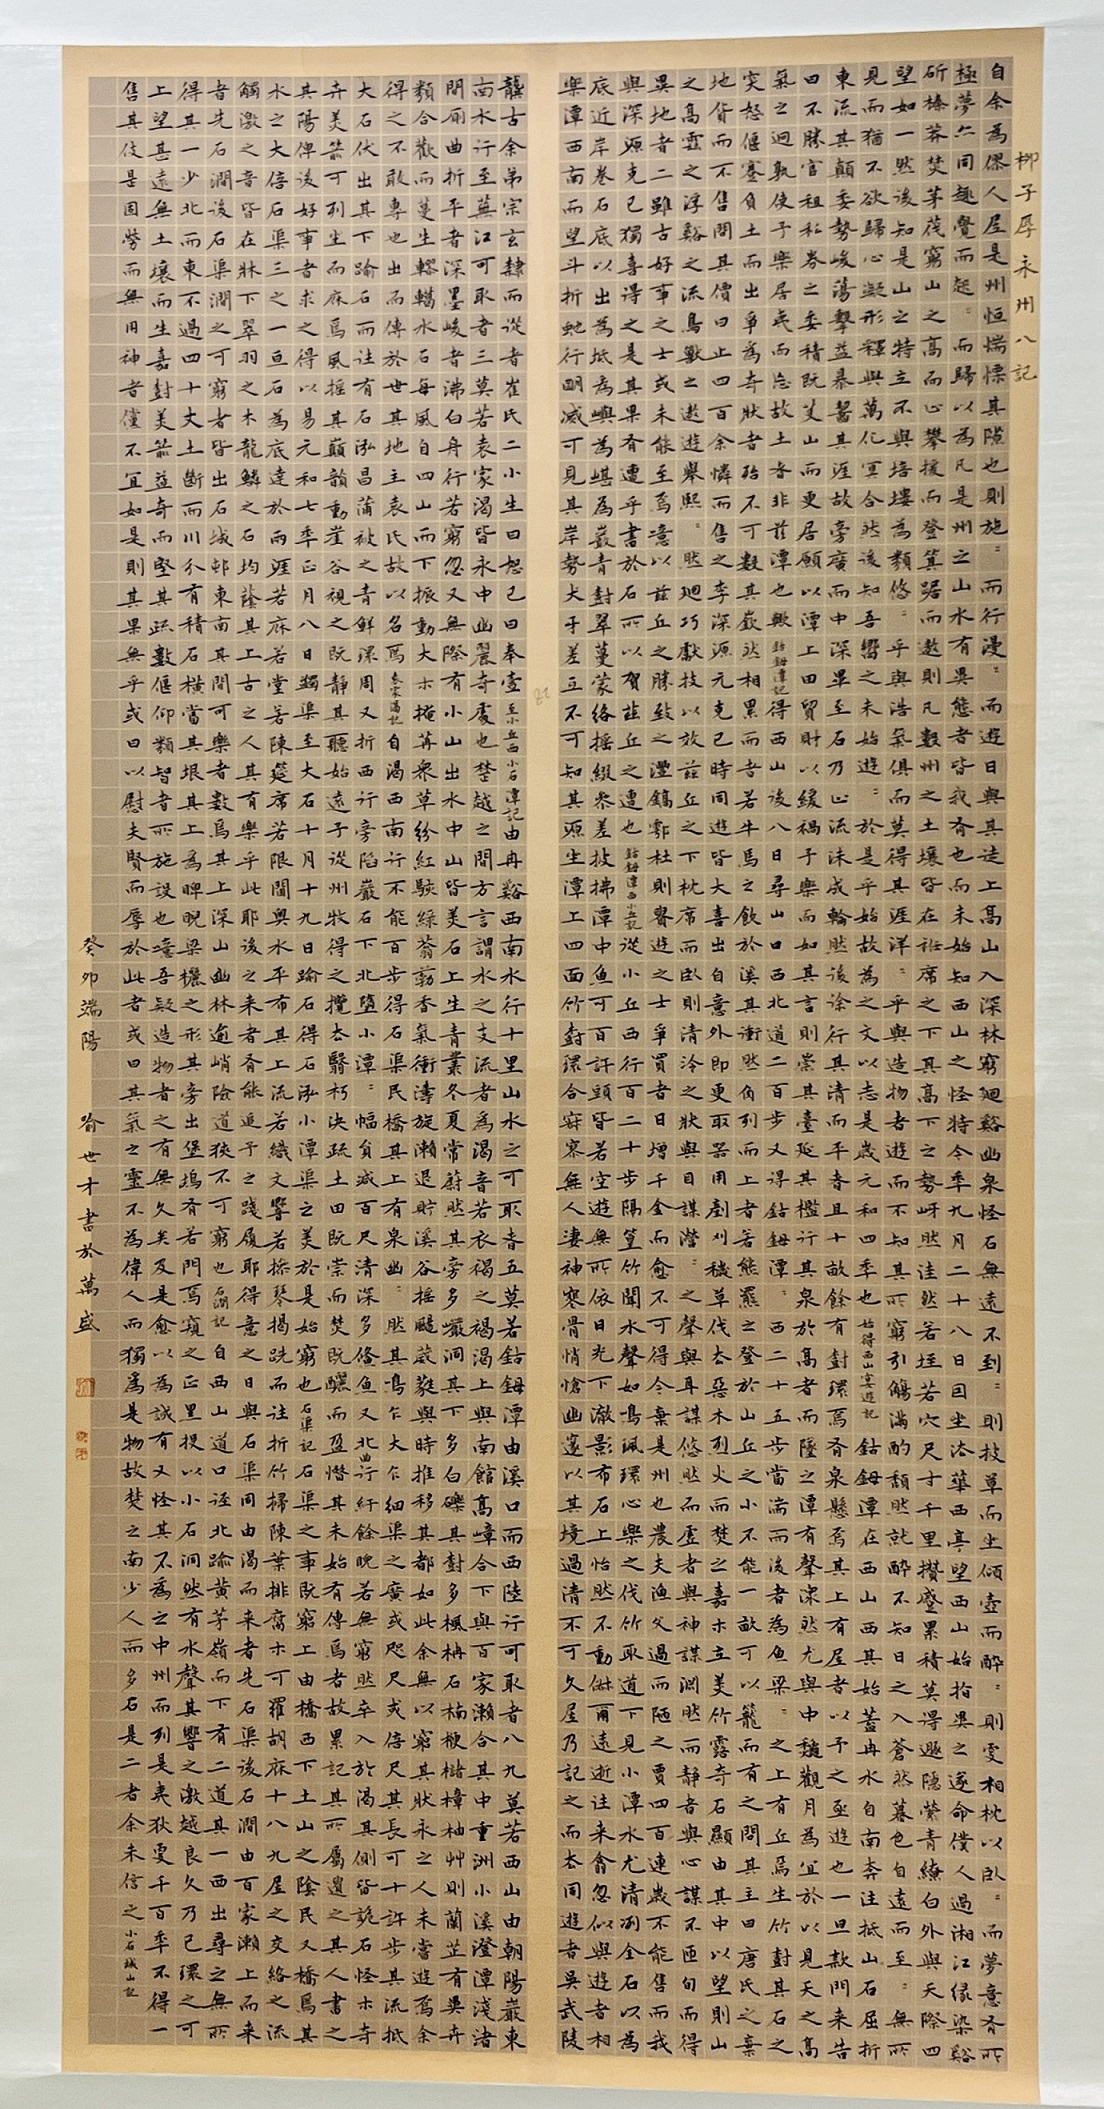 柳子厚永州八記
自余為僇人居是州恒惴慄其隙也則施=而行漫=而遊日與其徒上高山入深林窮迴谿幽泉怪石無遠不到=則披草而坐傾壺而醉=則更相枕以臥=而夢意有所
極夢亦同趣覺而起=而歸以為凡是州之山水有異態者皆我有也而未始知西山之怪特今年九月二十八日因坐法華西亭望西山始指異之遂命僕人過湘江緣染谿
斫榛莽焚茅茷窮山之高而止攀援而登箕踞而遨則凡數州之土壤皆在衽席之下其高下之勢岈然洼然若垤若穴尺寸千里攢蹙累積莫得遯隱縈青繚白外與天際四
望如一然後知是山之特立不與培塿為類悠=乎與浩氣俱而莫得其涯洋=乎與造物者遊而不知其所窮引觴滿酌頹然就醉不知日之入蒼然暮色自遠而至=無所
見而猶不欲歸心凝形釋與萬化冥合然後知吾嚮之未始遊=於是乎始故為之文以志是歲元和四年也始得西山宴遊記鈷鉧潭在西山西其始蓋冉水自南奔注抵山石屈折
東流其顛委勢峻蕩擊益暴齧其涯故旁廣而中深畢至石乃止流沫成輪然後徐行其清而平者且十畝餘有樹環焉有泉懸焉其上有居者以予之亟遊也一旦款門來告
曰不勝官租私券之委積既芟山而更居願以潭上田貿財以緩禍予樂而如其言則崇其臺延其檻行其泉於高者而墜之潭有聲潀然尤與中秋觀月為宜於以見天之高
氣之迥孰使予樂居夷而忘故土者非茲潭也歟鈷鉧潭記得西山後八日尋山口西北道二百步又得鈷鉧潭=西二十五步當湍而浚者為魚梁=之上有丘焉生竹樹其石之
突怒偃蹇負土而出爭為奇狀者殆不可數其嶔然相累而者若牛馬之飲於溪其衝然角列而上者若熊羆之登於山丘之小不能一畝可以籠而有之問其主曰唐氏之棄
地貨而不售問其價曰止四百余憐而售之李深源元克己時同遊皆大喜出自意外即更取器用剷刈穢草伐去惡木烈火而焚之嘉木立美竹露奇石顯由其中以望則山
之高雲之浮谿之流鳥獸之遨遊舉熙=然迴巧獻技以效茲丘之下枕席而臥則清泠之狀與目謀瀯=之聲與耳謀悠然而虛者與神謀淵然而靜者與心謀不匝旬而得
異地者二雖古好事之士或未能至焉噫以茲丘之勝致之灃鎬鄠杜則貴遊之士爭買者日增千金而愈不可得今棄是州也農夫漁父過而陋之賈四百連歲不能售而我
與深源克己獨喜得之是其果有遭乎書於石所以賀茲丘之遭也鈷鉧潭西小丘記從小丘西行百二十步隔篁竹聞水聲如鳴珮環心樂之伐竹取道下見小潭水尤清冽全石以為
底近岸卷石底以出為坻為嶼為嵁為巖青樹翠蔓蒙絡搖綴參差披拂潭中魚可百許頭皆若空遊無所依日光下澈影布石上怡然不動俶爾遠逝往來翕忽似與遊者相
樂潭西南而望斗折蛇行明滅可見其岸勢犬牙差互不可知其源坐潭上四面竹樹環合寂寥無人淒神寒骨悄愴幽邃以其境過清不可久居乃記之而去同遊者吳武陵
龔古余弟宗玄隸而從者崔氏二小生曰恕己曰奉壹至小丘西小石潭記由冉谿西南水行十里山水之可取者五莫若鈷鉧潭由溪口而西陸行可取者八九莫若西山由朝陽巖東
南水行至蕪江可取者三莫若袁家渴皆永中幽麗奇處也楚越之間方言謂水之支流者為渴音若衣褐之褐渴上與南館高嶂合下與百家瀨合其中重洲小溪澄潭淺渚
間廁曲折平者深墨峻者沸白舟行若窮忽又無際有小山出水中山皆美石上生青叢冬夏常蔚然其旁多巖洞其下多白礫其樹多楓柟石楠楩櫧樟柚艸則蘭芷有異卉
類合歡而蔓生轇轕水石每風自四山而下振動大木掩苒眾草紛紅駭綠蓊葧香氣衝濤旋瀨退貯溪谷搖颺葳蕤與時推移其都如此余無以窮其狀永之人未嘗遊焉余
得之不敢專也出而傳於世其地主袁氏故以名焉袁家渴記自渴西南行不能百步得石渠民橋其上有泉幽=然其鳴乍大乍細渠之廣或咫尺或倍尺其長可十許步其流抵
大石伏出其下踰石而往有石泓昌蒲被之青鮮環周又折西行旁陷巖石下北墮小潭=幅員減百尺清深多鯈魚又北曲行紆餘睨若無窮然卒入於渴其側皆詭石怪木奇
卉美箭可列坐而庥焉風搖其巔韻動崖谷視之既靜其聽始遠予從州牧得之攬去翳朽決疏土田既崇而焚既釃而盈惜其未始有傳焉者故累記其所屬遺之其人書之
其陽俾後好事者求之得以易元和七年正月八日蠲渠至大石十月十九日踰石得石泓小潭渠之美於是始窮也石渠記石渠之事既窮上由橋西下土山之陰民又橋焉其
水之大倍石渠三之一亘石為底達於兩涯若床若堂若陳筵席若限閫奧水平布其上流若織文響若操琴揭跣而往折竹掃陳葉排腐木可羅胡床十八九居之交絡之流
觸激之音皆在牀下翠羽之木龍鱗之石均蔭其上古之人其有樂乎此耶後之來者有能追予之踐履耶得意之日與石渠同由渴而來者先石渠後石澗由百家瀨上而來
者先石澗後石渠澗之可窮者皆出石城邨東南其間可樂者數焉其上深山幽林逾峭險道狹不可窮也石澗記自西山道口徑北踰黃茅嶺而下有二道其一西出尋之無所
得其一少北而東不過四十丈土斷而川分有積石橫當其垠其上為睥睨梁欐之形其旁出堡塢有若門焉窺之正里投以小石洞然有水聲其響之激越良久乃已環之可
上望甚遠無土壤而生嘉樹美箭益奇而堅其疏數偃仰類智者所施設也噫吾疑造物者之有無久矣及是愈以為誠有又怪其不為之中州而列是夷狄更千百年不得一
售其伎是固勞而無用神者儻不宜如是則其果無乎或曰以慰夫賢而辱於此者或曰其氣之靈不為偉人而獨為是物故楚之南少人而多石是二者余未信之小石城山記
癸卯端陽 喻世才書於萬盛